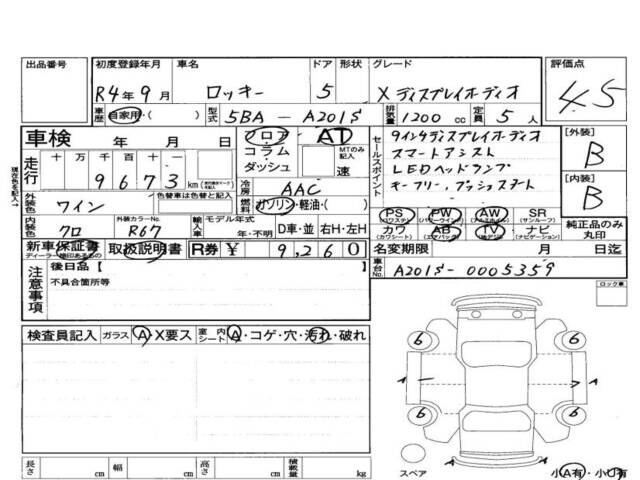 出品番号 初度登録年月 車名 ドア 形状 グレード 評価点
R4年9月 ロッキー 5 X ディスプレイオーディオ 4.5
車歴 自家用・( ) 型式 5BA - A201S 排気量 1200 cc 定員 5 人
車検 年 月 日 フロア AT
コラム MTのみ記入
ダッシュ 速
セールスポイント
9インチディスプレイオーディオ
スマートアシスト
LEDヘッドランプ
キーフリー,プッシュスタート
[外装] B
[内装] B
走行 十 万 千 百 十 一
9673 km
冷房 AAC
外装色 ワイン 色替車は色替と記入 燃料 ガソリン・軽油・( )
内装色 クロ 外装カラーNo. R67 輸入車 モデル年式 年・不明 D車・並 右H・左H
PS PW AW SR
(パワステ) (パワーウインドウ) (アルミホイル) (サンルーフ)
カワ AB TV ナビ
(カワシート) (エアバッグ) (ナビゲーション)
純正品のみ丸印
新車保証書 取扱説明書 R券 ¥ 9,260
名変期限 月 日迄
車台No. A201S-0005359
注意事項
後日品【
不具合箇所等
ロック車
検査員記入 ガラス A・X要ス 室内シート A・コゲ・穴・汚れ・破れ
6 6
A A
6 6
スペア
小A有・小U有
長さ cm 幅 cm 高さ cm 積載量 kg
現在色を記入→